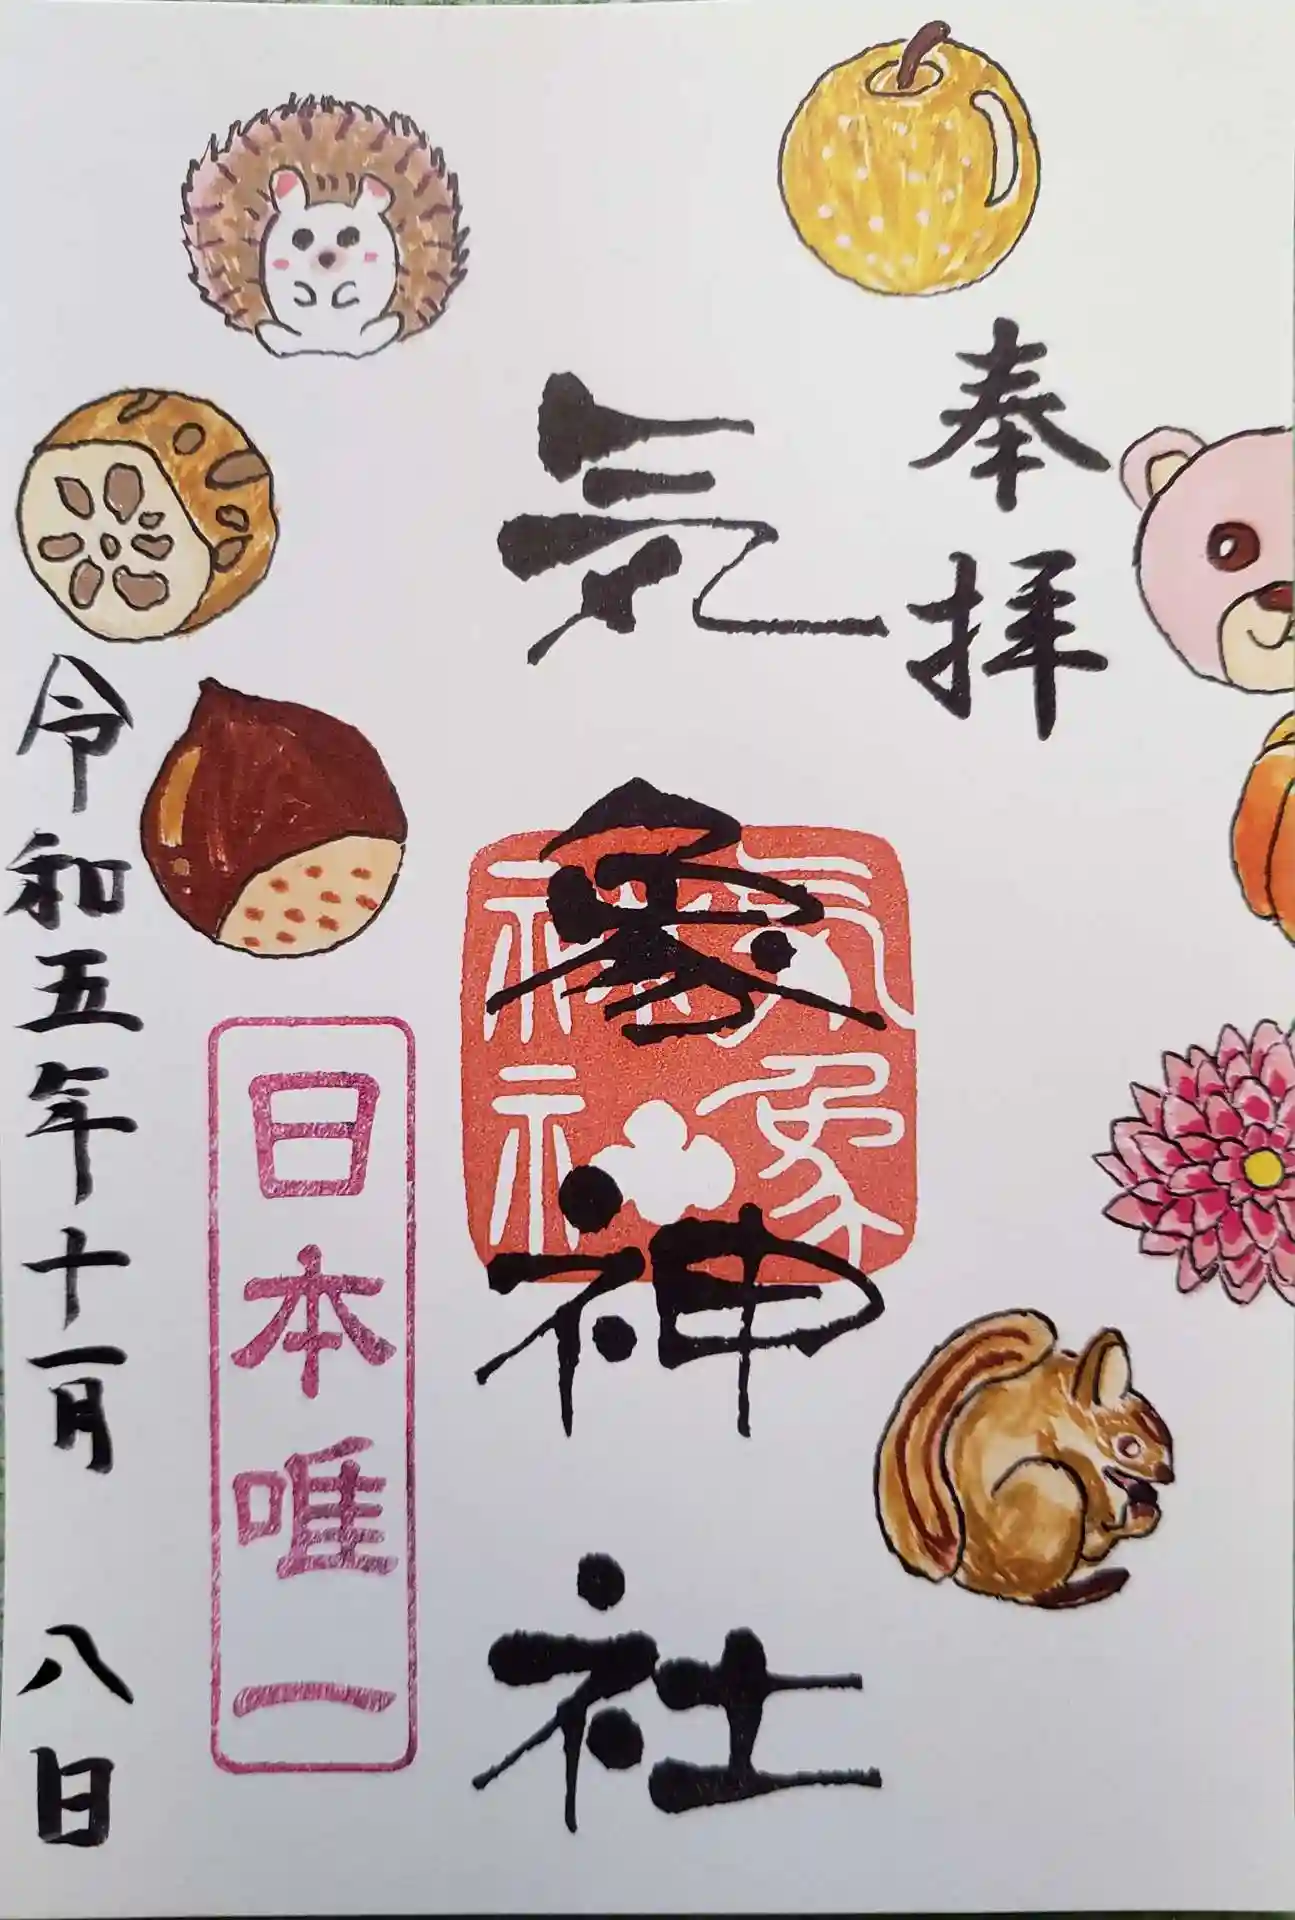 奉拝
気象神社
気象神社
日本唯一
令和五年十一月八日